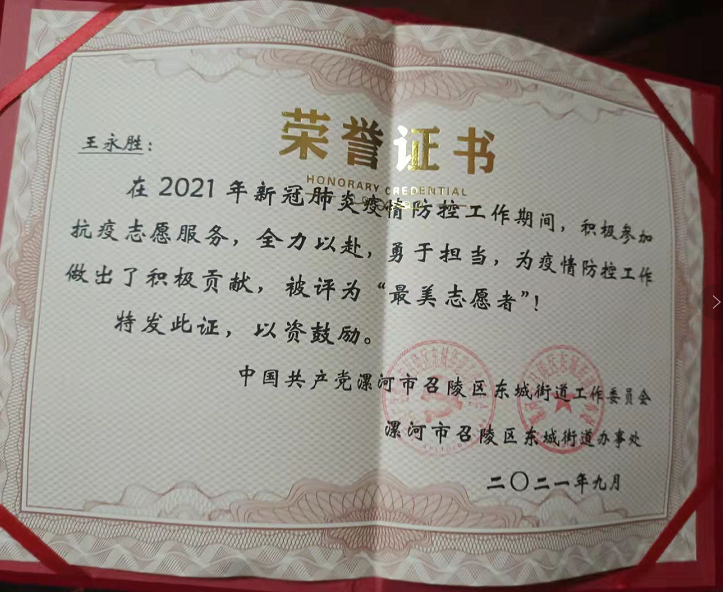 荣誉证书
HONORARY CREDENTIAL
王永胜：
在2021年新冠肺炎疫情防控工作期间，积极参加
抗疫志愿服务，全力以赴，勇于担当，为疫情防控工作
做出了积极贡献，被评为“最美志愿者”！
特发此证，以资鼓励。
中国共产党漯河市召陵区东城街道工作委员会
漯河市召陵区东城街道办事处
二〇二一年九月